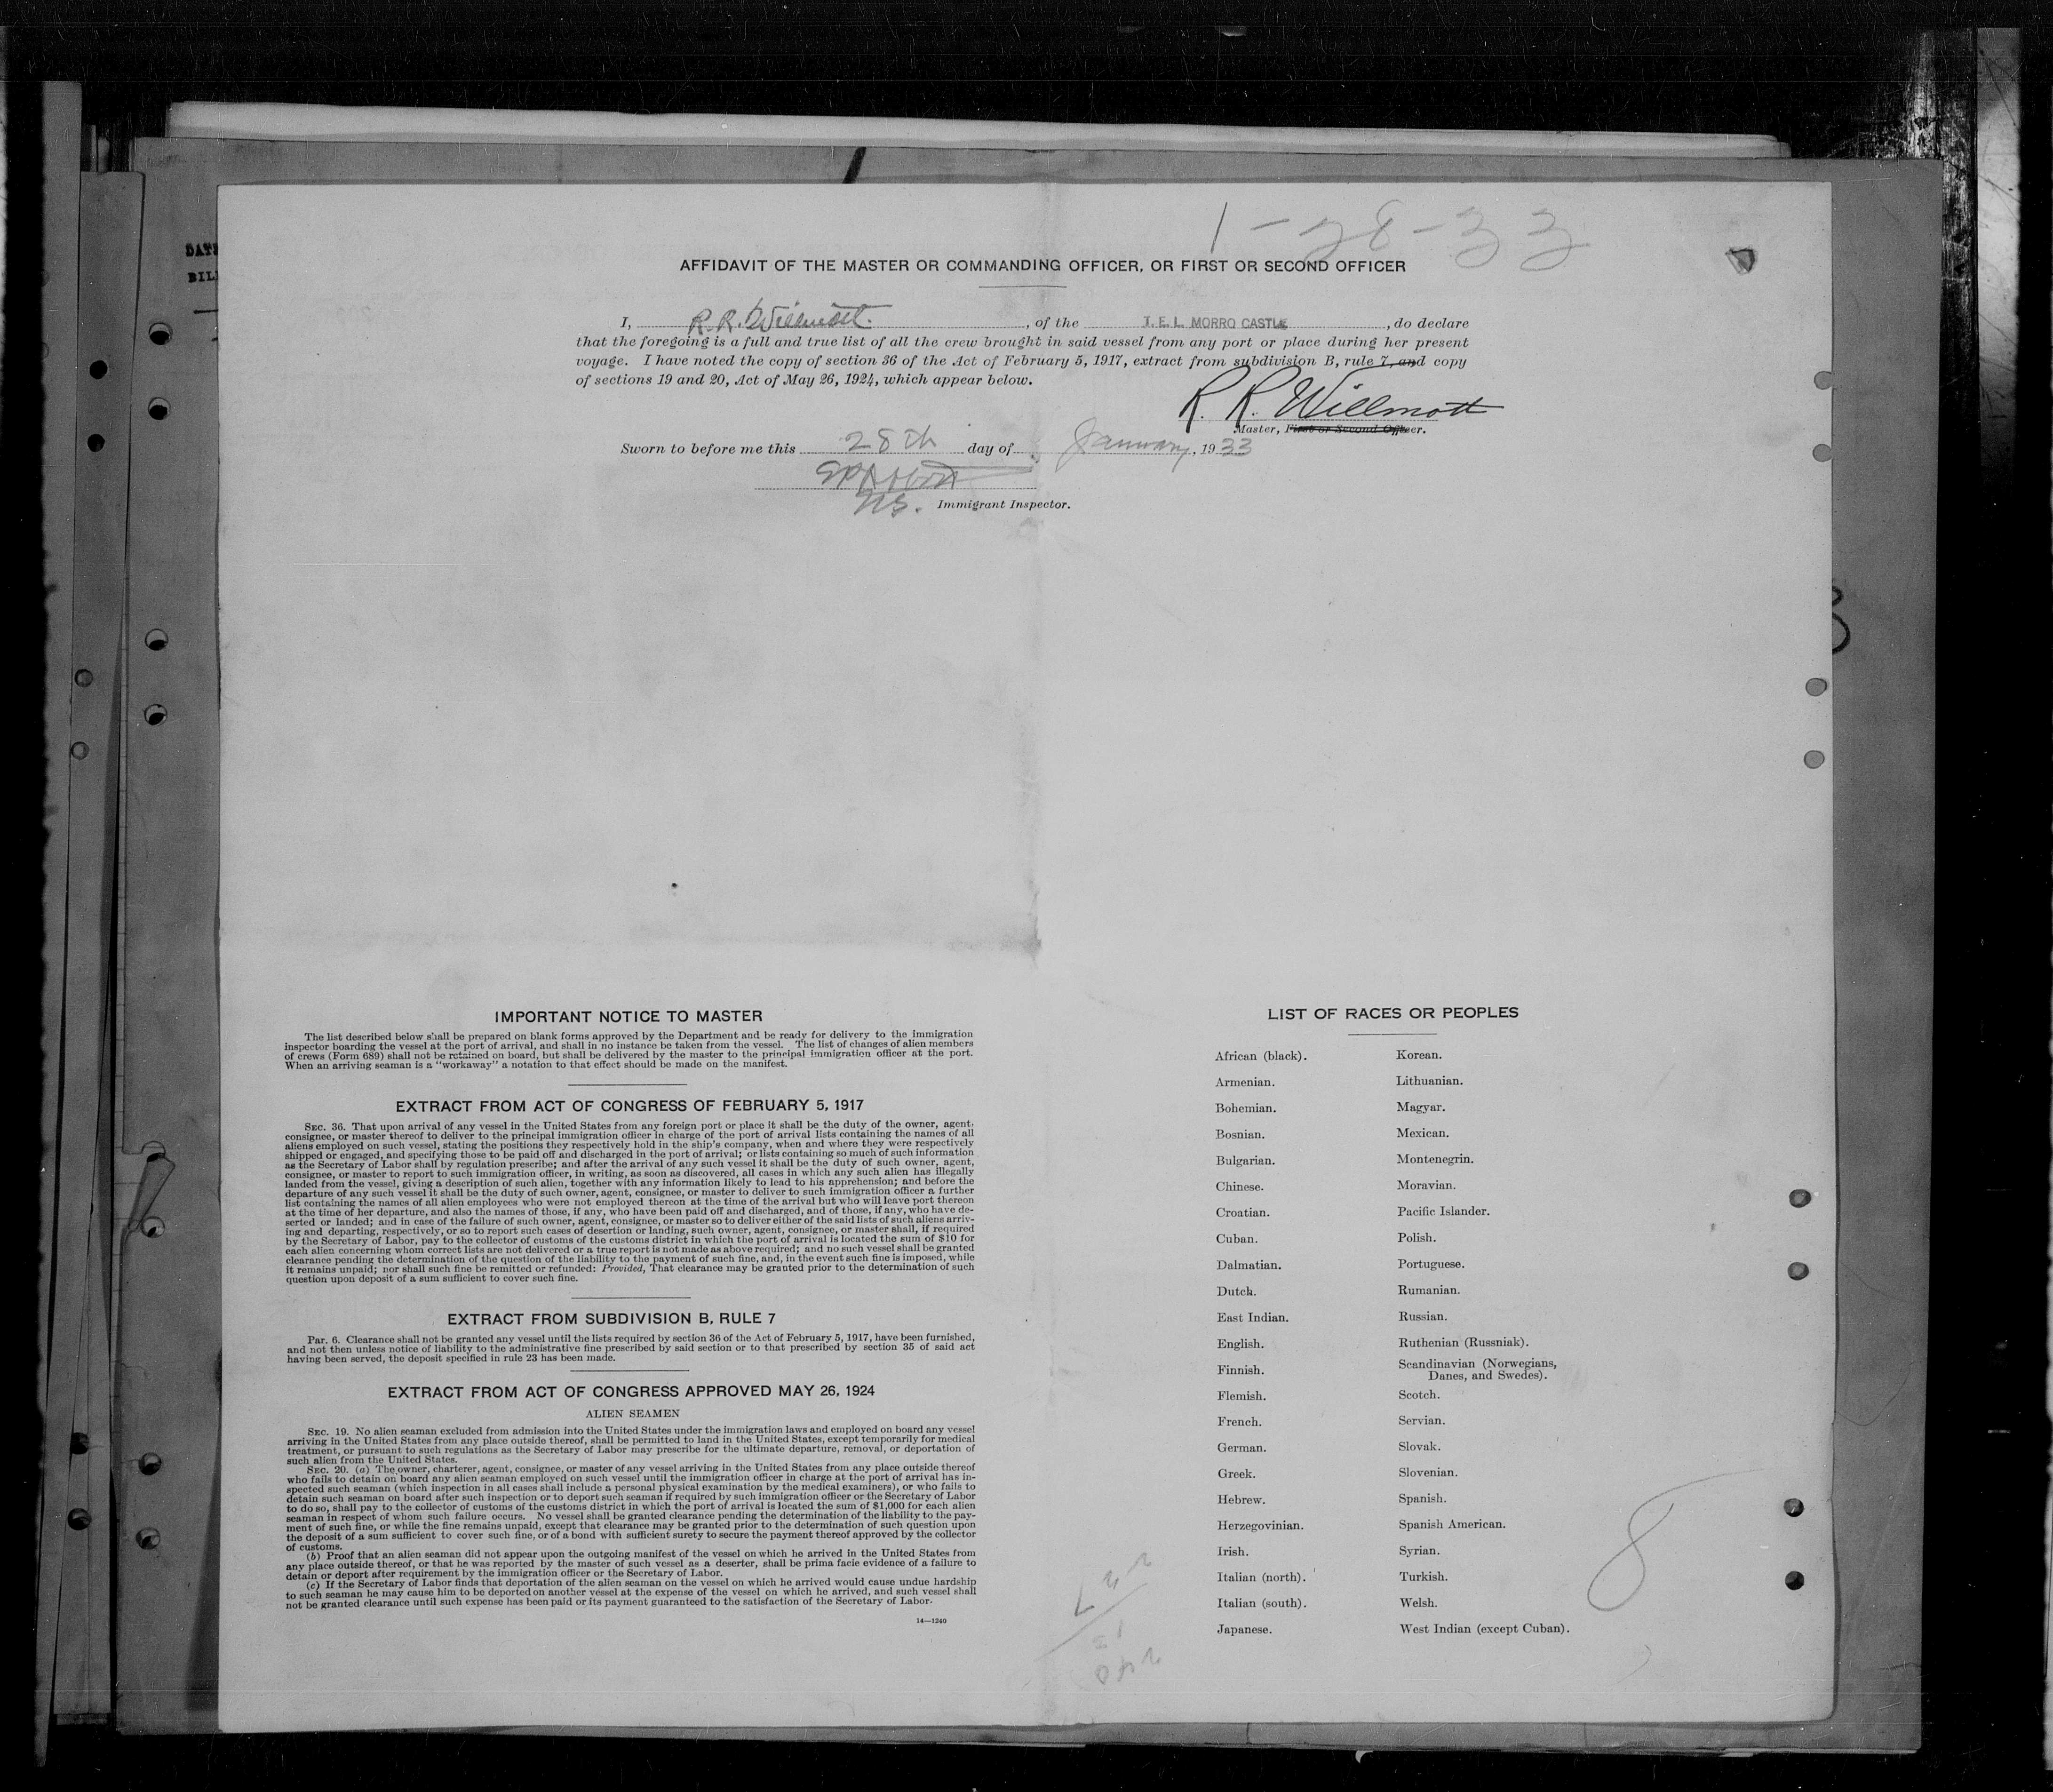 1-28-33
DAT
BIL
AFFIDAVIT OF THE MASTER OR COMMANDING OFFICER, OR FIRST OR SECOND OFFICER
I, R. R. Willmott. , of the T.E.L. MORRO CASTLE , do declare
that the foregoing is a full and true list of all the crew brought in said vessel from any port or place during her present
voyage. I have noted the copy of section 36 of the Act of February 5, 1917, extract from subdivision B, rule 7, and copy
of sections 19 and 20, Act of May 26, 1924, which appear below.
R. R. Willmott
Master, First or Second Officer.
Sworn to before me this 28th day of January, 1933
U.S. Immigrant Inspector.
IMPORTANT NOTICE TO MASTER
The list described below shall be prepared on blank forms approved by the Department and be ready for delivery to the immigration
inspector boarding the vessel at the port of arrival, and shall in no instance be taken from the vessel. The list of changes of alien members
of crews (Form 689) shall not be retained on board, but shall be delivered by the master to the principal immigration officer at the port.
When an arriving seaman is a "workaway" a notation to that effect should be made on the manifest.
EXTRACT FROM ACT OF CONGRESS OF FEBRUARY 5, 1917
SEC. 36. That upon arrival of any vessel in the United States from any foreign port or place it shall be the duty of the owner, agent,
consignee, or master thereof to deliver to the principal immigration officer in charge of the port of arrival lists containing the names of all
aliens employed on such vessel, stating the positions they respectively hold in the ship's company, when and where they were respectively
shipped or engaged, and specifying those to be paid off and discharged in the port of arrival; or lists containing so much of such information
as the Secretary of Labor shall by regulation prescribe; and after the arrival of any such vessel it shall be the duty of such owner, agent,
consignee, or master to report to such immigration officer, in writing, as soon as discovered, all cases in which any such alien has illegally
landed from the vessel, giving a description of such alien, together with any information likely to lead to his apprehension; and before the
departure of any such vessel it shall be the duty of such owner, agent, consignee, or master to deliver to such immigration officer a further
list containing the names of all alien employees who were not employed thereon at the time of the arrival but who will leave port thereon
at the time of her departure, and also the names of those, if any, who have been paid off and discharged, and of those, if any, who have de-
serted or landed; and in case of the failure of such owner, agent, consignee, or master so to deliver either of the said lists of such aliens arriv-
ing and departing, respectively, or so to report such cases of desertion or landing, such owner, agent, consignee, or master shall, if required
by the Secretary of Labor, pay to the collector of customs of the customs district in which the port of arrival is located the sum of $10 for
each alien concerning whom correct lists are not delivered or a true report is not made as above required; and no such vessel shall be granted
clearance pending the determination of the question of the liability to the payment of such fine, and, in the event such fine is imposed, while
it remains unpaid; nor shall such fine be remitted or refunded: Provided, That clearance may be granted prior to the determination of such
question upon deposit of a sum sufficient to cover such fine.
EXTRACT FROM SUBDIVISION B, RULE 7
Par. 6. Clearance shall not be granted any vessel until the lists required by section 36 of the Act of February 5, 1917, have been furnished,
and not then unless notice of liability to the administrative fine prescribed by said section or to that prescribed by section 35 of said act
having been served, the deposit specified in rule 23 has been made.
EXTRACT FROM ACT OF CONGRESS APPROVED MAY 26, 1924
ALIEN SEAMEN
SEC. 19. No alien seaman excluded from admission into the United States under the immigration laws and employed on board any vessel
arriving in the United States from any place outside thereof, shall be permitted to land in the United States, except temporarily for medical
treatment, or pursuant to such regulations as the Secretary of Labor may prescribe for the ultimate departure, removal, or deportation of
such alien from the United States.
SEC. 20. (a) The owner, charterer, agent, consignee, or master of any vessel arriving in the United States from any place outside thereof
who fails to detain on board any alien seaman employed on such vessel until the immigration officer in charge at the port of arrival has in-
spected such seaman (which inspection in all cases shall include a personal physical examination by the medical examiners), or who fails to
detain such seaman on board after such inspection or to deport such seaman if required by such immigration officer or the Secretary of Labor
to do so, shall pay to the collector of customs of the customs district in which the port of arrival is located the sum of $1,000 for each alien
seaman in respect of whom such failure occurs. No vessel shall be granted clearance pending the determination of the liability to the pay-
ment of such fine, or while the fine remains unpaid, except that clearance may be granted prior to the determination of such question upon
the deposit of a sum sufficient to cover such fine, or of a bond with sufficient surety to secure the payment thereof approved by the collector
of customs.
(b) Proof that an alien seaman did not appear upon the outgoing manifest of the vessel on which he arrived in the United States from
any place outside thereof, or that he was reported by the master of such vessel as a deserter, shall be prima facie evidence of a failure to
detain or deport after requirement by the immigration officer or the Secretary of Labor.
(c) If the Secretary of Labor finds that deportation of the alien seaman on the vessel on which he arrived would cause undue hardship
to such seaman he may cause him to be deported on another vessel at the expense of the vessel on which he arrived, and such vessel shall
not be granted clearance until such expense has been paid or its payment guaranteed to the satisfaction of the Secretary of Labor.
14—1240
LIST OF RACES OR PEOPLES
African (black). Korean.
Armenian. Lithuanian.
Bohemian. Magyar.
Bosnian. Mexican.
Bulgarian. Montenegrin.
Chinese. Moravian.
Croatian. Pacific Islander.
Cuban. Polish.
Dalmatian. Portuguese.
Dutch. Rumanian.
East Indian. Russian.
English. Ruthenian (Russniak).
Finnish. Scandinavian (Norwegians,
Danes, and Swedes).
Flemish. Scotch.
French. Servian.
German. Slovak.
Greek. Slovenian.
Hebrew. Spanish.
Herzegovinian. Spanish American.
Irish. Syrian.
Italian (north). Turkish.
Italian (south). Welsh.
Japanese. West Indian (except Cuban).
8